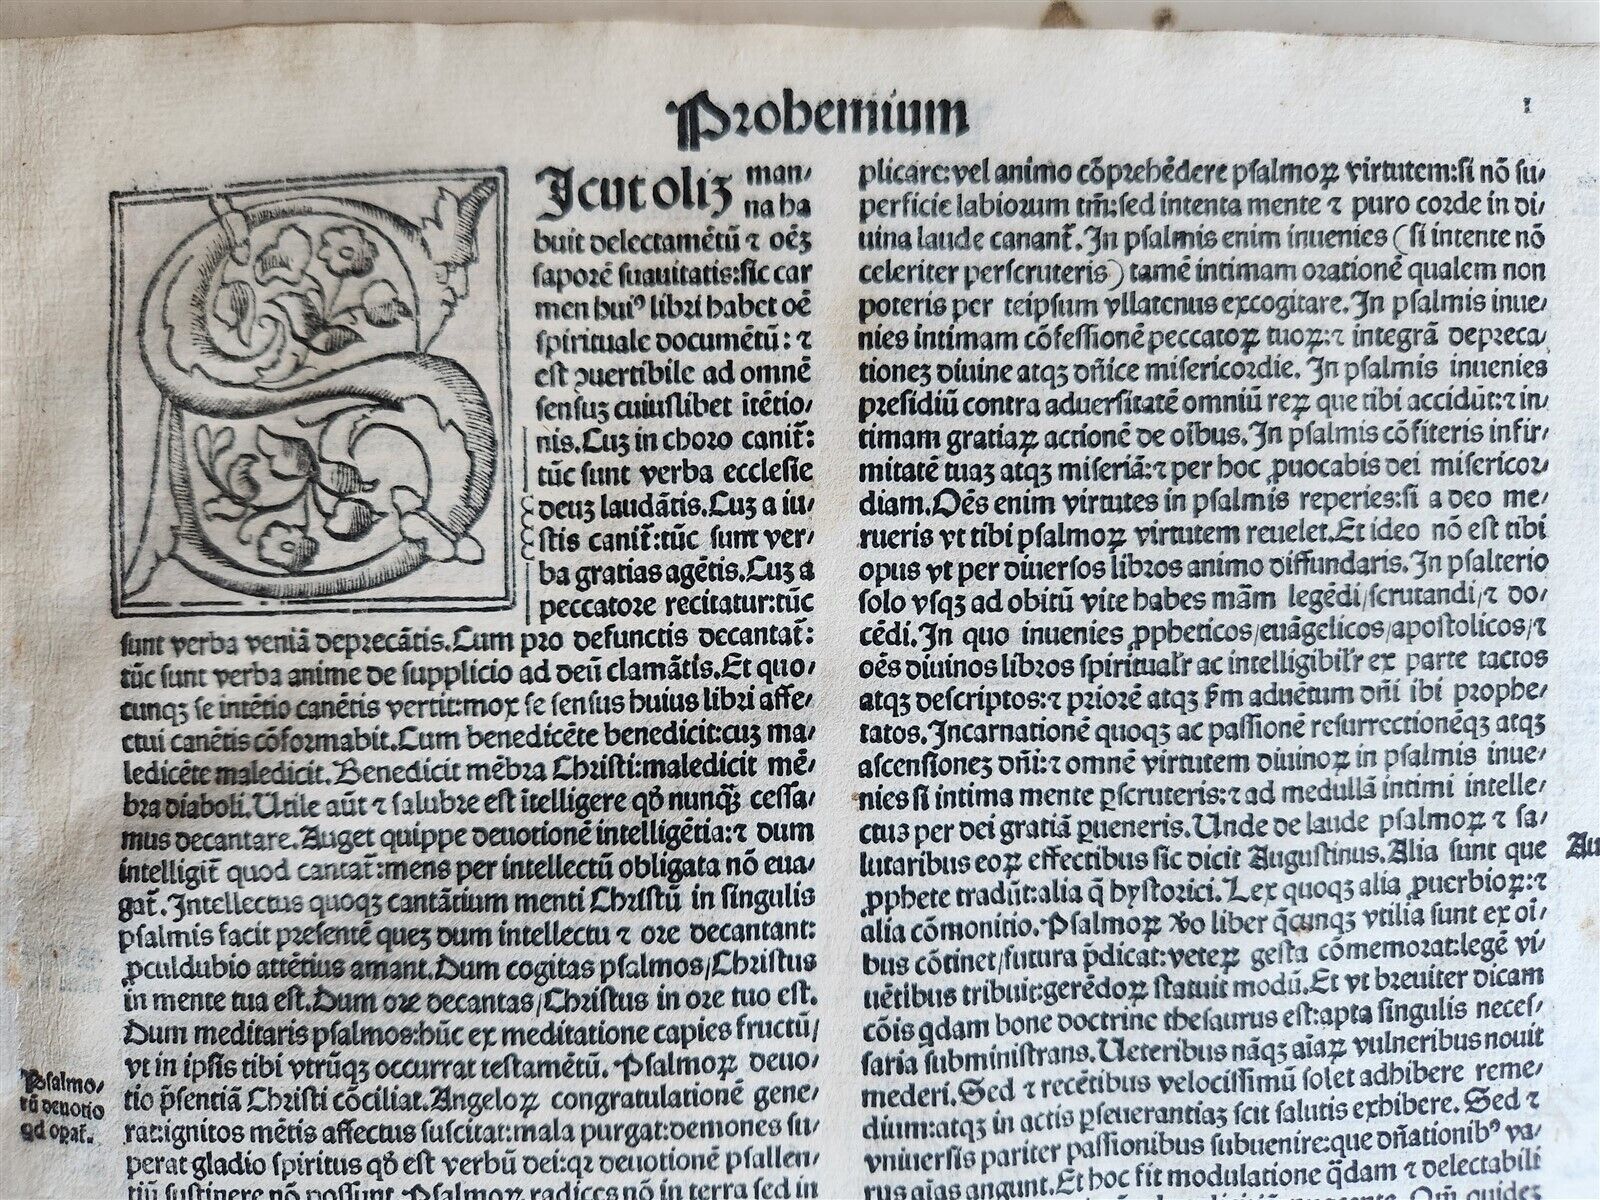 Prohemium
ı
Sicut oliꝫ man⸗
na ha
buit delectamētū ⁊ oēꝫ
saporē suauitatis:sic car
men huiꝰ libri habet oē
spirituale documētū: ⁊
est ꝯuertibile ad omnē
sensuꝫ cuiuslibet itētio⸗
nis. Cuꝫ in choro canit̄:
tūc sunt verba ecclesie
deuꝫ laudātis. Cuꝫ a iu⸗
stis canit̄:tūc sunt ver⸗
ba gratias agētis. Cuꝫ a
peccatore recitatur:tūc
sunt verba veniā deprecātis. Cum pro defunctis decantat̄:
tūc sunt verba anime de supplicio ad deū clamātis. Et quo⸗
cunqꝫ se intētio canētis vertit:mox se sensus huius libri affe⸗
ctui canētis cōformabit. Cum benedicēte benedicit:cuꝫ ma⸗
ledicēte maledicit. Benedicit mēbra Christi:maledicit mē⸗
bra diaboli. Utile aūt ⁊ salubre est ītelligere qd̄ nunqꝫ̄ cessa⸗
mus decantare. Auget quippe deuotionē intelligētia:⁊ dum
intelligit̄ quod cantat̄:mens per intellectū obligata nō eua⸗
gat̄. Intellectus quoqꝫ cantātium menti Christū in singulis
psalmis facit presentē queꝫ dum intellectu ⁊ ore decantant:
ꝓculdubio attētius amant. Dum cogitas psalmos/Christus
in mente tua est. Dum ore decantas/Christus in ore tuo est.
Dum meditaris psalmos:hūc ex meditatione capies fructū/
vt in ipsis tibi vtrūqꝫ occurrat testamētū. Psalmoꝝ deuo⸗
tio p̄sentiā Christi cōciliat. Angeloꝝ congratulationē gene⸗
rat:ignitos mētis affectus suscitat:mala purgat:demones su⸗
perat gladio spiritus qd̄ est verbū dei:qꝛ deuotionē psallen⸗
tiū sustinere nō possunt. Psalmoꝝ radices nō in terra sed in
Psalmo⸗
rū deuotio
qd opat̄.
plicare:vel animo cōprehēdere psalmoꝝ virtutem:si nō su⸗
perficie labiorum tm̄:sed intenta mente ⁊ puro corde in di⸗
uina laude canant̄. In psalmis enim inuenies (si intente nō
celeriter perscruteris) tamē intimam orationē qualem non
poteris per teipsum vllatenus excogitare. In psalmis inue⸗
nies intimam cōfessionē peccatoꝝ tuoꝝ:⁊ integrā depreca⸗
tioneꝫ diuine atqꝫ dn̄ice misericordie. In psalmis inuenies
presidiū contra aduersitatē omniū reꝝ que tibi accidūt:⁊ in⸗
timam gratiaꝝ actionē de oībus. In psalmis cōfiteris infir⸗
mitatē tuaꝫ atqꝫ miseriā:⁊ per hoc ꝓuocabis dei misericor⸗
diam. Oēs enim virtutes in psalmis reperies:si a deo me⸗
rueris vt tibi psalmoꝝ virtutem reuelet. Et ideo nō est tibi
opus vt per diuersos libros animo diffundaris. In psalterio
solo vsqꝫ ad obitū vite habes mām legēdi/scrutandi/⁊ do⸗
cēdi. In quo inuenies ꝓpheticos/euāgelicos/apostolicos/⁊
oēs diuinos libros spiritualr̄ ac intelligibilr̄ ex parte tactos
atqꝫ descriptos:⁊ priorē atqꝫ scd̄m aduētum dn̄i ibi prophe⸗
tatos. Incarnationē quoqꝫ ac passionē resurrectionēqꝫ atqꝫ
ascensioneꝫ dn̄i:⁊ omnē virtutem diuinoꝝ in psalmis inue⸗
nies si intima mente ꝑscruteris:⁊ ad medullā intimi intelle⸗
ctus per dei gratiā ꝑueneris. Unde de laude psalmoꝝ ⁊ sa⸗
lutaribus eoꝝ effectibus sic dicit Augustinus. Alia sunt que
ꝓphete tradūt:alia q̄ hystorici. Lex quoqꝫ alia ꝓuerbioꝝ:⁊
alia cōmonitio. Psalmoꝝ ꝟo liber q̄cunqꝫ vtilia sunt ex oī⸗
bus cōtinet/futura p̄dicat:veteꝝ gesta cōmemorat:legē vi⸗
uētibus tribuit:gerēdoꝝ statuit modū. Et vt breuiter dicam
cōis q̄dam bone doctrine thesaurus est:apta singulis neces⸗
saria subministrans. Ueteribus nāqꝫ aīaꝝ vulneribus nouit
mederi. Sed ⁊ recētibus velocissimū solet adhibere reme⸗
dium:atqꝫ in actis ꝑseuerantiaꝫ scit salutis exhibere. Sed ⁊
vniuersis pariter passionibus subuenire:que dn̄ationibꝰ va⸗
rus aīas angunt. Et hoc fit modulatione q̄dam ⁊ delectabili
Au